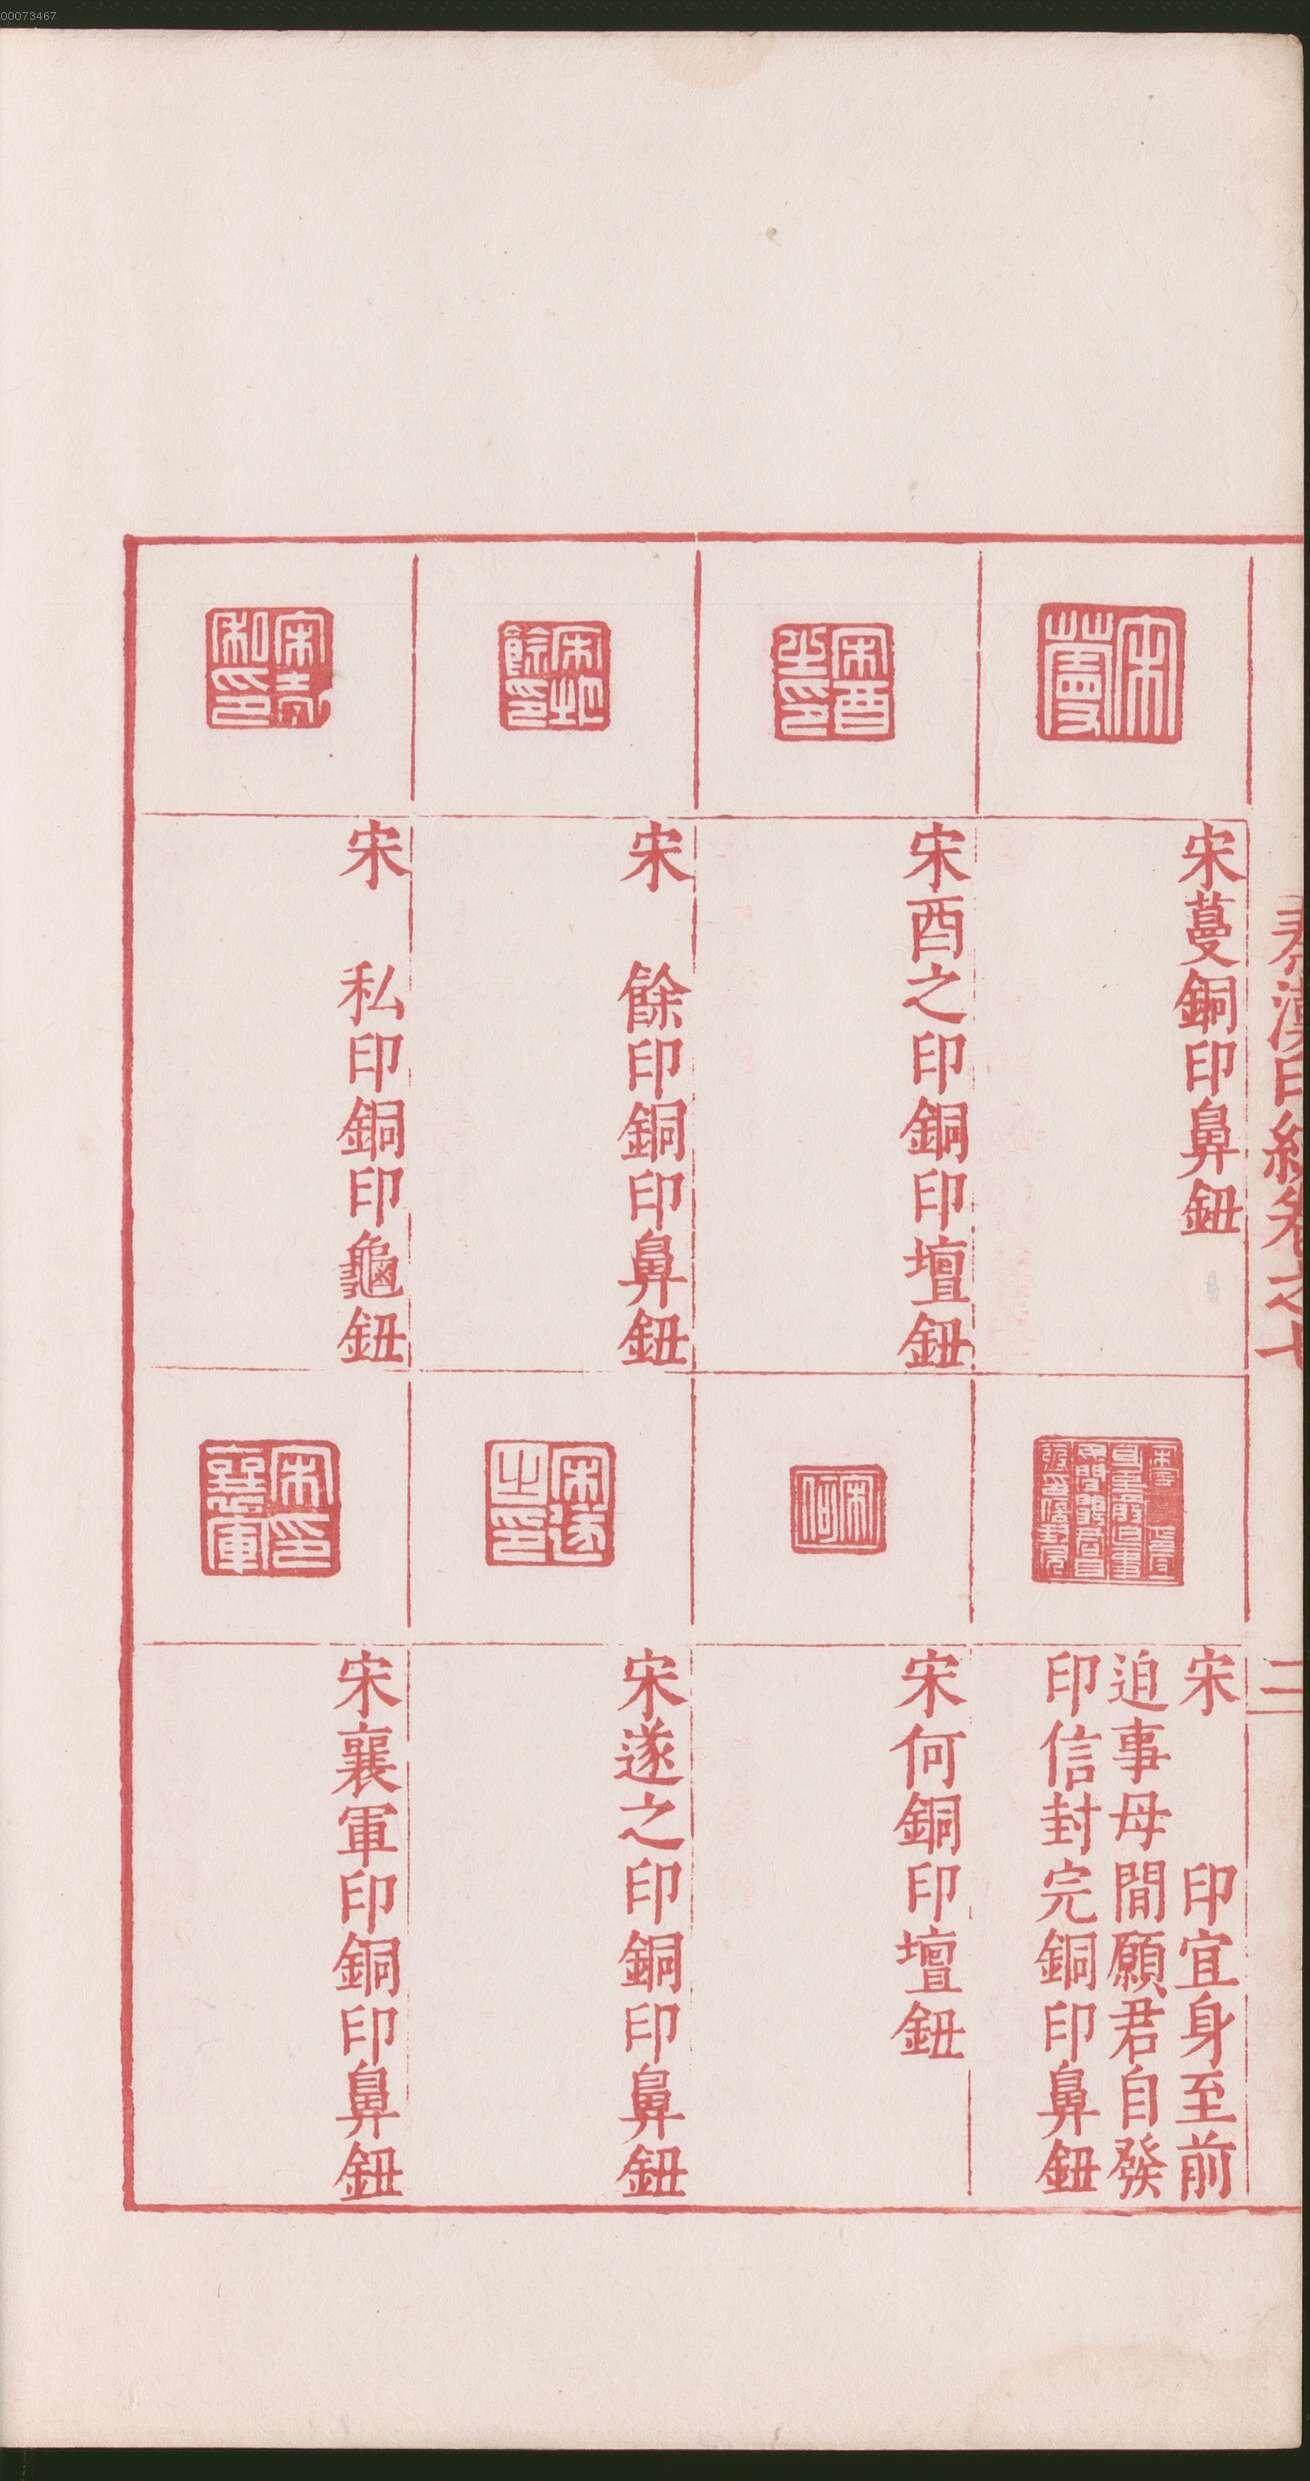 00073467
秦漢印統卷之七
二
宋蔓銅印鼻鈕
宋酉之印銅印壇鈕
宋　餘印銅印鼻鈕
宋　私印銅印龜鈕
宋　　印宜身至前
迫事毋閒願君自發
印信封完銅印鼻鈕
宋何銅印壇鈕
宋遂之印銅印鼻鈕
宋襄軍印銅印鼻鈕